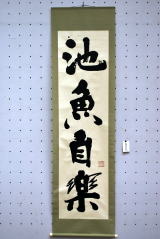 池魚自樂